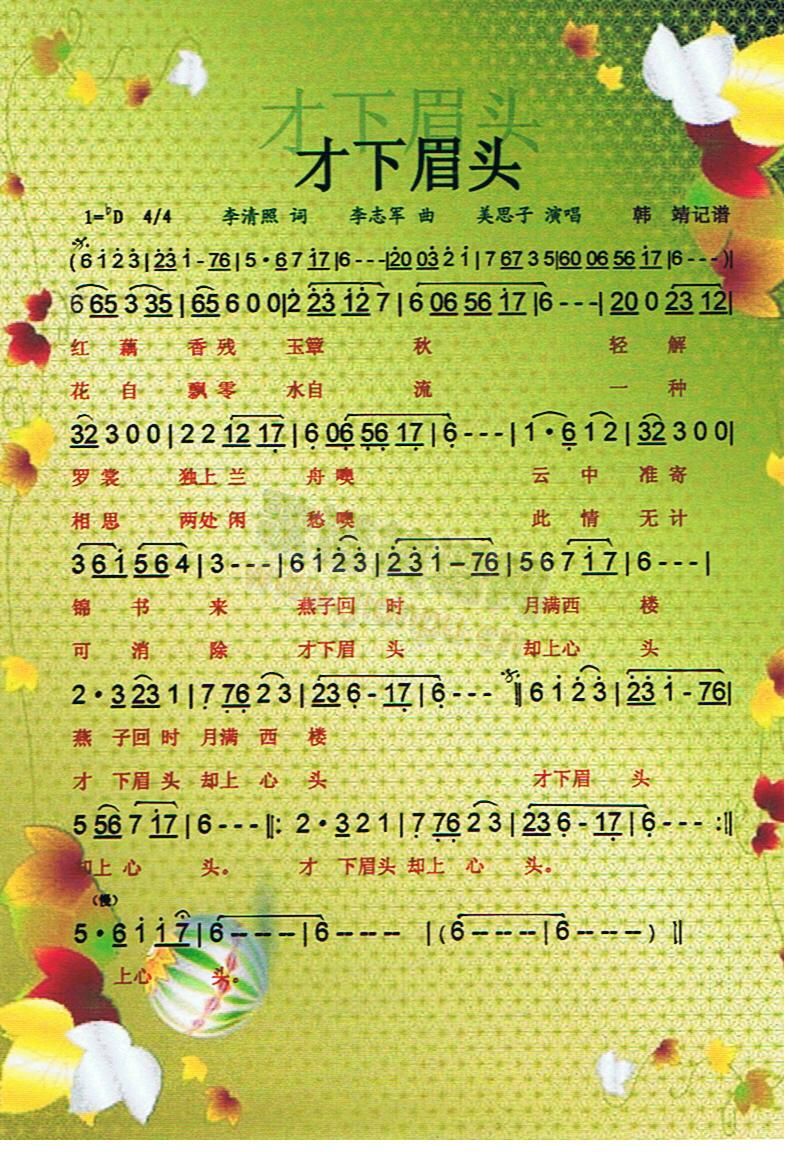 才下眉头
才下眉头
1=♭D 4/4 李清照 词 李志军 曲 美思子 演唱 韩 靖记谱
(6 1 2 3|23 1-76|5·6 7 17|6---|20 03 2 1|7 67 3 5|60 06 56 17|6---)|
6 65 3 35|65 6 0 0|2 23 12 7|6 06 56 17|6---|20 0 23 12|
红 藕 香 残 玉簟 秋 轻 解
花 自 飘 零 水自 流 一 种
32 3 0 0|2 2 12 17|6 06 56 17|6---|1·6 1 2|32 3 0 0|
罗 裳 独上 兰 舟 噢 云 中 准 寄
相 思 两处 闲 愁 噢 此 情 无 计
3 61 56 4|3---|6 1 2 3|23 1-76|5 6 7 17|6---|
锦 书 来 燕子回 时 月满西 楼
可 消 除 才下眉 头 却上心 头
2·3 23 1|7 76 2 3|23 6-17|6---‖6 1 2 3|23 1-76|
燕 子回 时 月满 西 楼
才 下眉 头 却上 心 头 才下眉 头
5 56 7 17|6---‖:2·3 2 1|7 76 2 3|23 6-17|6---:‖
却上 心 头。 才 下眉头 却上 心 头。
(慢)
5·6 1 17|6---|6---|(6---|6---)‖
上心 头。